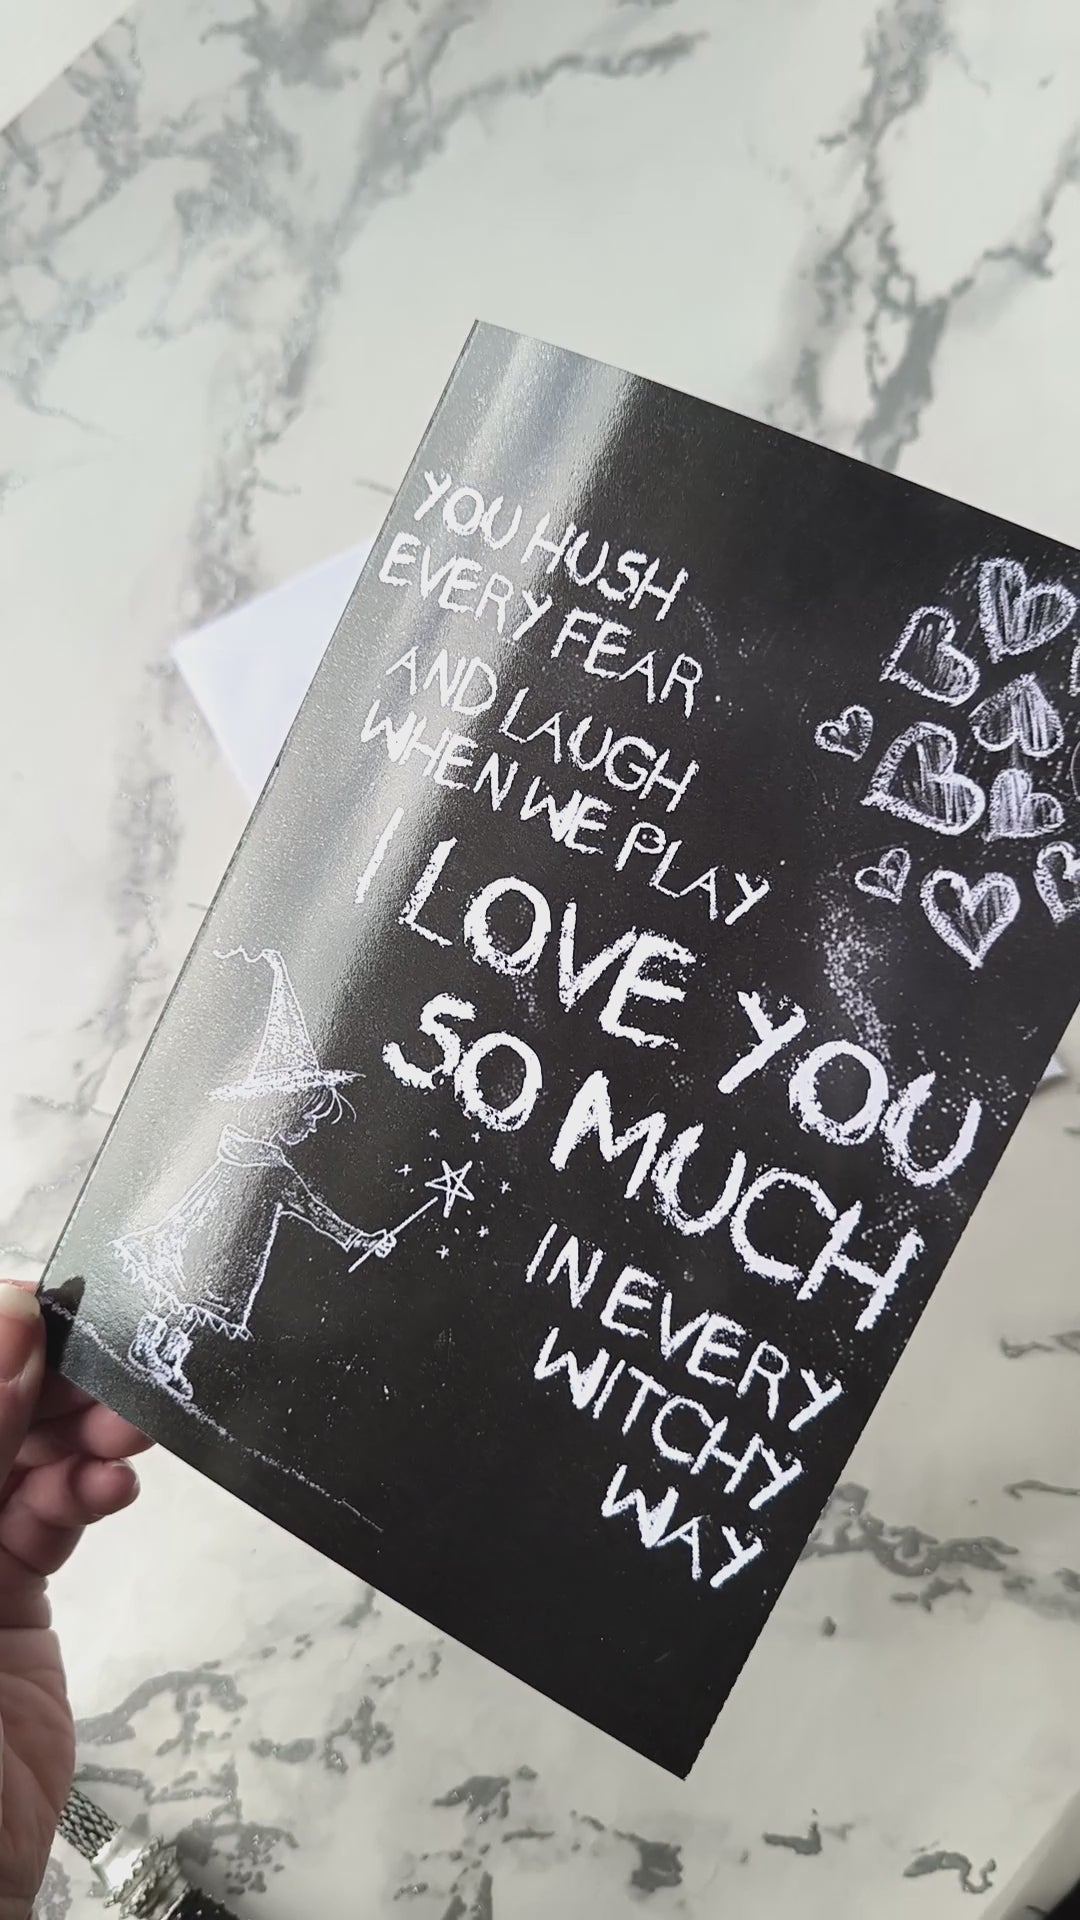 YOU HUSH
EVERY FEAR
AND LAUGH
WHEN WE PLAY
I LOVE YOU
SO MUCH
IN EVERY
WITCHY
WAY